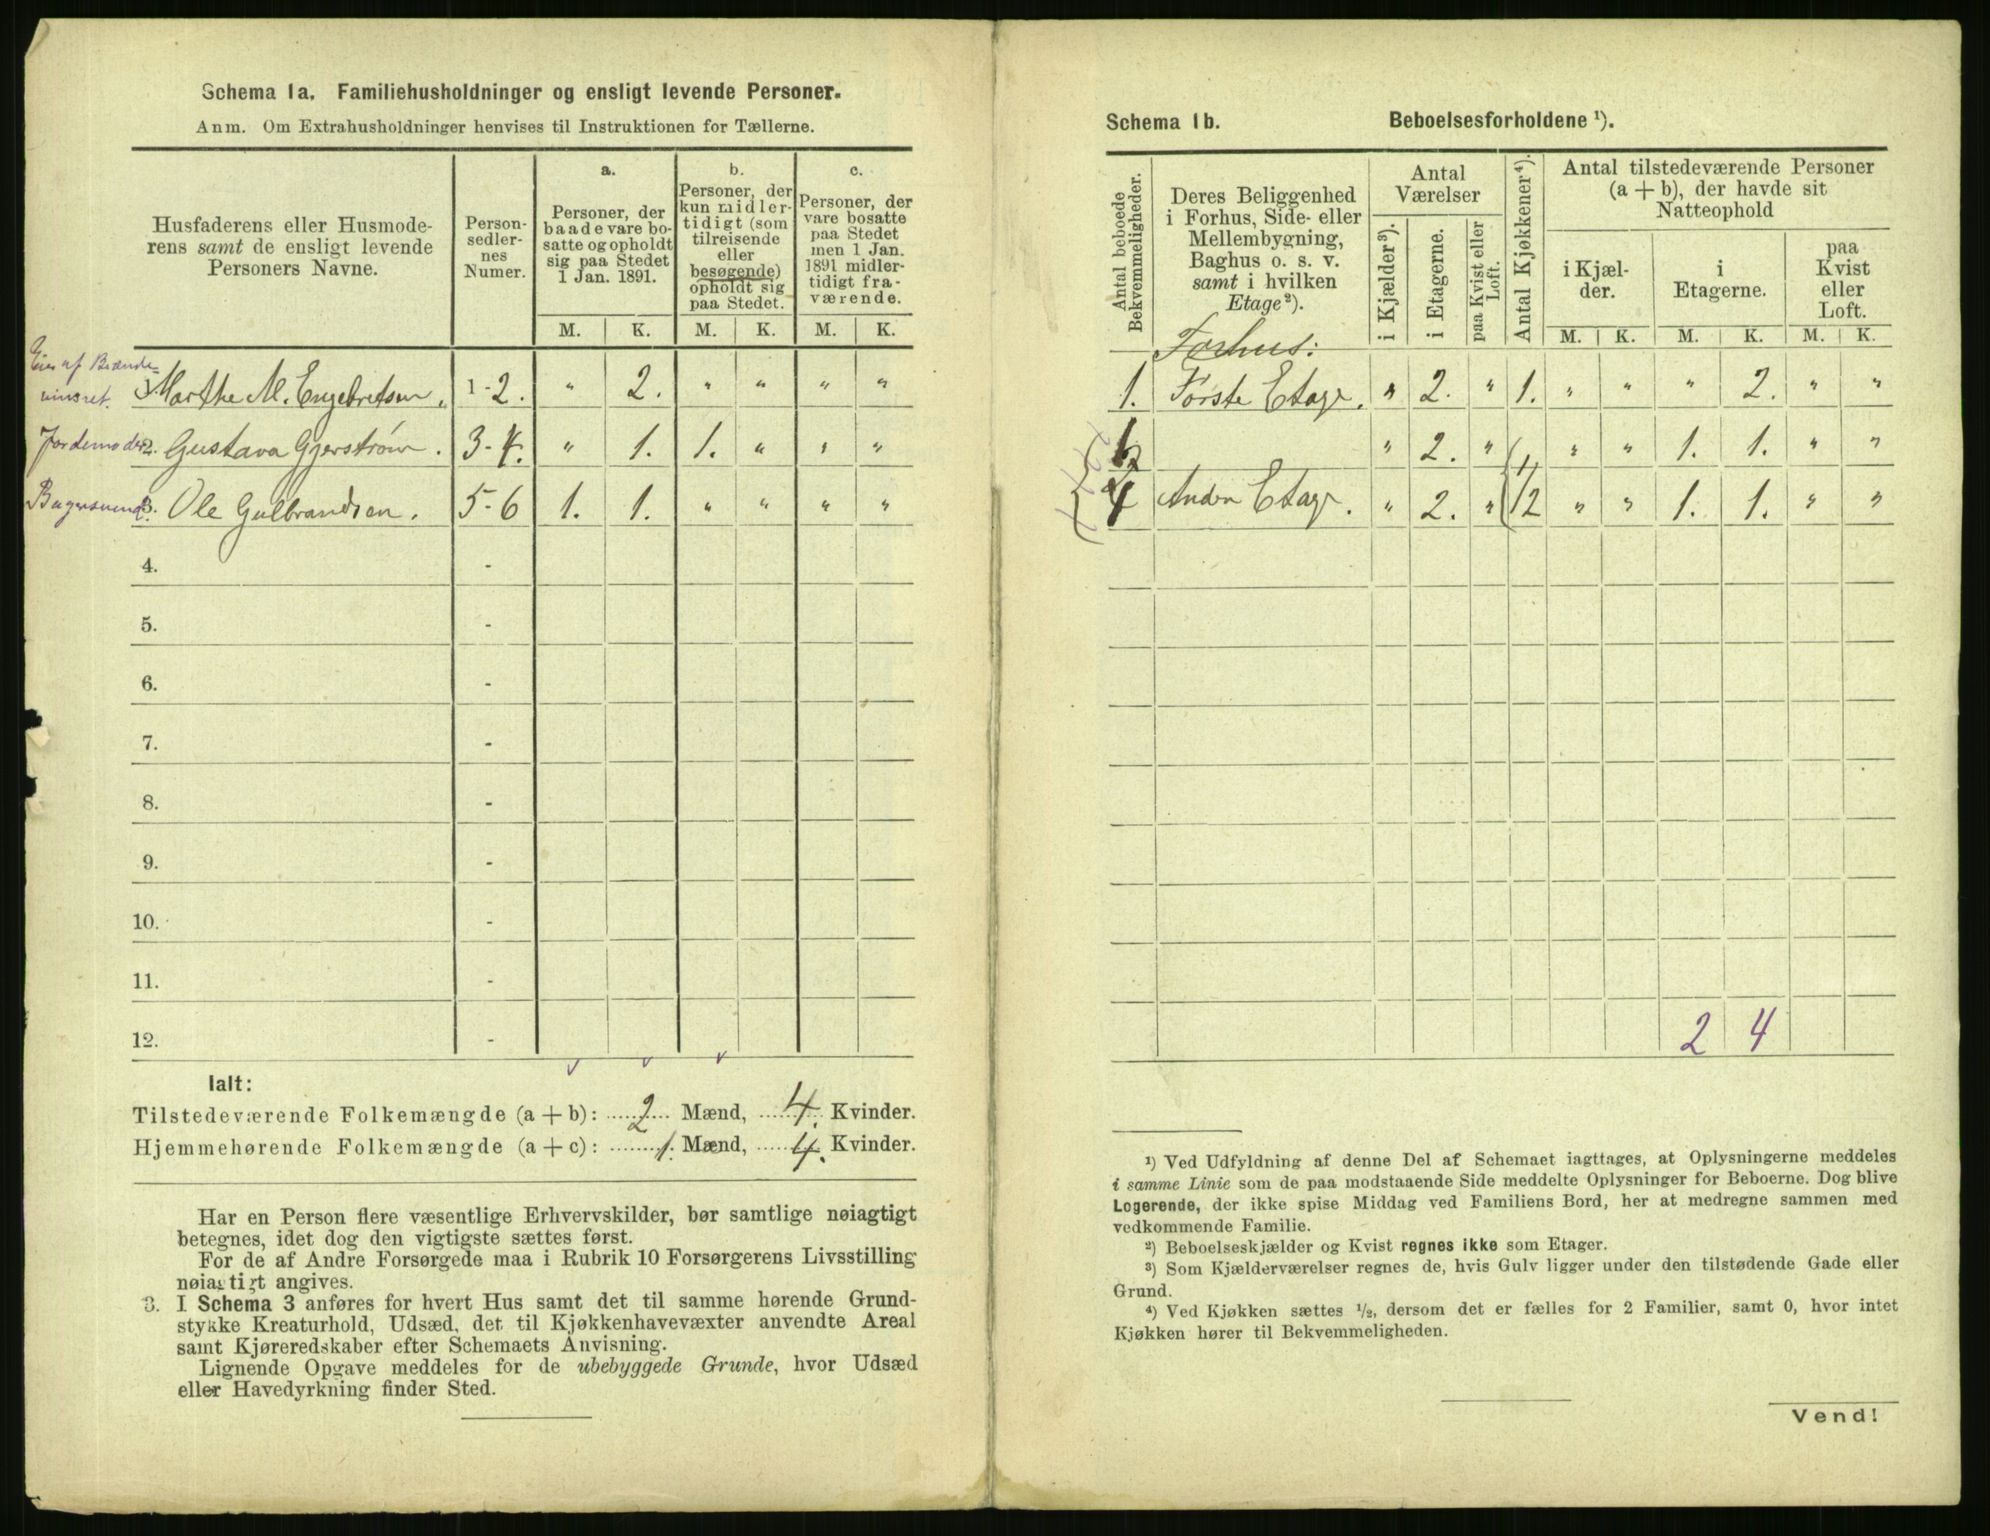 Schema 1a. Familiehusholdninger og ensligt levende Personer.
Anm. Om Extrahusholdninger henvises til Instruktionen for Tællerne.
Husfaderens eller Husmode-
rens samt de ensligt levende
Personers Navne.
Person-
sedler-
nes
Numer.
a.
Personer, der
baade vare bo-
satte og opholdt
sig paa Stedet
1 Jan. 1891.
b.
Personer, der
kun midler-
tidigt (som
tilreisende
eller
besøgende)
opholdt sig
paa Stedet.
c.
Personer, der
vare bosatte
paa Stedet
men 1 Jan.
1891 midler-
tidigt fra-
værende.
M. K. M. K. M. K.
Eier af Brænde-
vinsret. 1. Marthe M. Engebretsen. 1-2. " 2. " " " "
Jordemoder 2. Gustava Gjerstrøm. 3-4. " 1. 1. " " "
Bagersvend 3. Ole Gulbrandsen. 5-6 1. 1. " " " "
4. -
5. -
6. -
7. -
8. -
9. -
10. -
11. -
12. -
Ialt:
Tilstedeværende Folkemængde (a + b): 2 Mænd, 4. Kvinder.
Hjemmehørende Folkemængde (a + c): 1. Mænd, 4. Kvinder.
Har en Person flere væsentlige Erhvervskilder, bør samtlige nøiagtigt
betegnes, idet dog den vigtigste sættes først.
For de af Andre Forsørgede maa i Rubrik 10 Forsørgerens Livsstilling
nøiagtigt angives.
3. I Schema 3 anføres for hvert Hus samt det til samme hørende Grund-
stykke Kreaturhold, Udsæd, det til Kjøkkenhavevæxter anvendte Areal
samt Kjøreredskaber efter Schemaets Anvisning.
Lignende Opgave meddeles for de ubebyggede Grunde, hvor Udsæd
eller Havedyrkning finder Sted.
Schema 1b. Beboelsesforholdene ¹).
Antal beboede
Bekvemmeligheder.
Deres Beliggenhed
i Forhus, Side- eller
Mellembygning,
Baghus o. s. v.
samt i hvilken
Etage²).
Antal
Værelser
i Kjælder³).
i Etagerne.
paa Kvist eller
Loft.
Antal Kjøkkener⁴).
Antal tilstedeværende Personer
(a + b), der havde sit
Natteophold
i Kjæl-
der.
i
Etagerne.
paa
Kvist
eller
Loft.
M. K. M. K. M. K.
Forhus:
1. Første Etage. " 2. " 1. " " " 2. " "
" 2. " " " 1. 1. " "
Anden Etage. " 2. " 1/2 " " 1. 1. " "
2 4
¹) Ved Udfyldning af denne Del af Schemaet iagttages, at Oplysningerne meddeles
i samme Linie som de paa modstaaende Side meddelte Oplysninger for Beboerne. Dog blive
Logerende, der ikke spise Middag ved Familiens Bord, her at medregne sammen med
vedkommende Familie.
²) Beboelseskjælder og Kvist regnes ikke som Etager.
³) Som Kjælderværelser regnes de, hvis Gulv ligger under den tilstødende Gade eller
Grund.
⁴) Ved Kjøkken sættes ¹/₂, dersom det er fælles for 2 Familier, samt 0, hvor intet
Kjøkken hører til Bekvemmeligheden.
Vend!